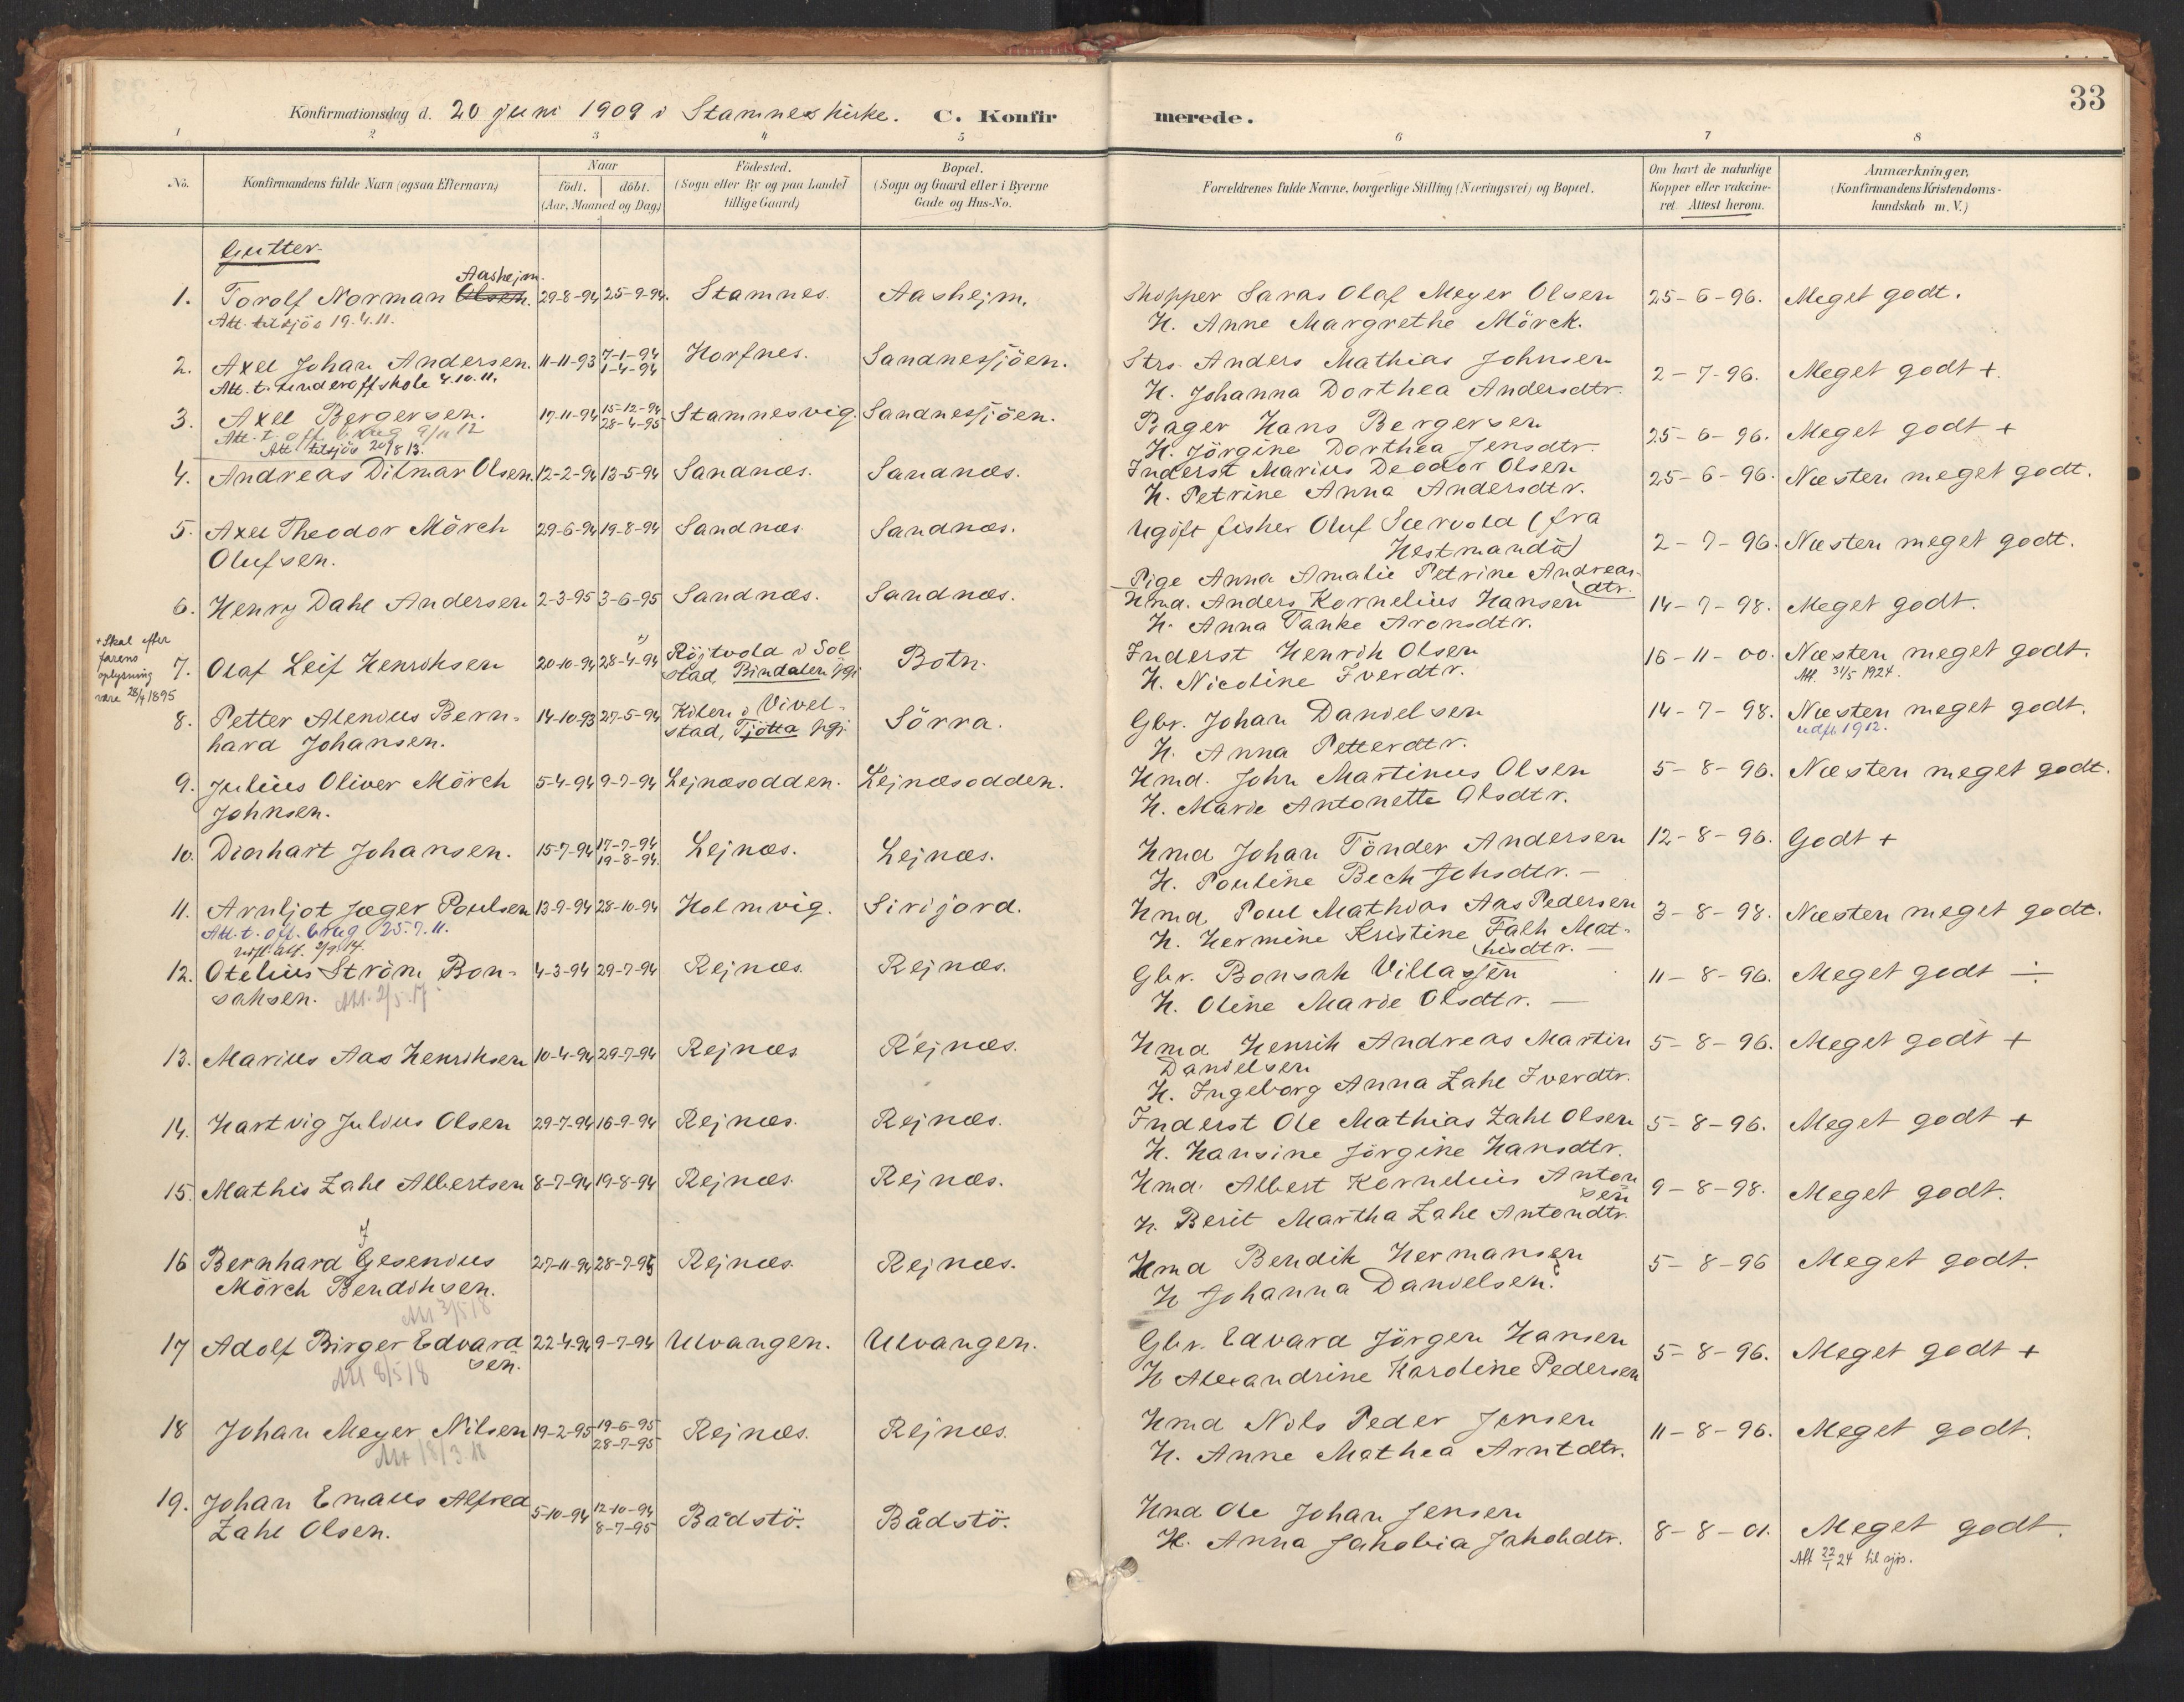 33
Konfirmationsdag d. 20 juni 1909 i Stamnes kirke. C. Konfirmerede.
1 2 3 4 5 6 7 8
No.
Konfirmandens fulde Navn (ogsaa Efternavn)
Naar
födt. döbt.
(Aar, Maaned og Dag)
Födested.
(Sogn eller By og paa Landet
tillige Gaard)
Bopæl.
(Sogn og Gaard eller i Byerne
Gade og Hus-No.
Forældrenes fulde Navne, borgerlige Stilling (Næringsvei) og Bopæl.
Om havt de naturlige
Kopper eller vakcine-
ret. Attest herom.
Anmærkninger.
(Konfirmandens Kristendoms-
kundskab m. V.)
Gutter
Aashejm.
1. Torolf Norman Olsen. 29-8-94 25-9-94. Stamnes. Aashejm. Skopper Saras Olaf Meyer Olsen 25-6-96. Meget godt.
Att. tilsjös 19.4.11. H. Anne Margrethe Mörck.
2. Axel Johan Andersen. 11-11-93 7-1-94 Horfnes. Sandnessjöen. Strs. Anders Mathias Johnsen 2-7-96. Meget godt +
1-4-94
Att. t. underoffskole 4.10.11. H. Johanna Dorthea Andersdtr.
3. Axel Bergersen. 17-11-94 15-12-94 Stamnesvig. Sandnessjöen. Bager Hans Bergersen 25-6-96. Meget godt +
28-4-95
Att. t. off. brug 9/11 12 H. Jörgine Dorthea Jensdtr.
Att tilsjös 20/8 13.
4. Andreas Ditmar Olsen. 12-2-94 13-5-94 Sandnæs. Sandnæs. Inderst Marius Deodor Olsen 25-6-96. Næsten meget godt.
H. Petrine Anna Andersdtr.
5. Axel Theodor Mörch 29-6-94 19-8-94 Sandnæs. Sandnæs. Ugift fisker Oluf Særvold (fra 2-7-96. Næsten meget godt.
Olufsen. Hestmandö)
Pige Anna Amalie Petrine Andreas-
dtr.
6. Henry Dahl Andersen 2-3-95 3-6-95 Sandnæs. Sandnæs. Hmd. Anders Kornelius Hansen 14-7-98. Meget godt.
H. Anna Tanke Aronsdtr.
+ Skal efter
farens
oplysning
være 28/4 1895
7. Olaf Leif Henriksen 20-10-94 28-4-94 Röjtvola i Sol Botn. Inderst Henrik Olsen 16-11-00. Næsten meget godt.
stad, Bindalen pgj H. Nicoline Iverdtr. Att. 31/5 1924.
8. Petter Alenius Bern- 14-10-93 27-5-94 Kilen i Vivel- Sörra. Gbr. Johan Danielsen 14-7-98. Næsten meget godt.
hard Johansen. stad, Tjötta pgj. H. Anna Petterdtr. udfl. 1912.
9. Julius Oliver Mörch 5-4-94 9-7-94 Lejnæsodden. Lejnæsodden. Hmd. John Martinus Olsen 5-8-96. Næsten meget godt.
Johnsen. H. Marie Antonette Olsdtr.
10. Diorhart Johansen. 15-7-94 17-7-94 Lejnæs. Lejnæs. Hmd Johan Tönder Andersen 12-8-96. Godt +
19-8-94.
H. Pouline Bech Johsdtr. -
11. Arnljot Jæger Poulsen 13-9-94 28-10-94 Holmvig. Sirijord. Hmd Poul Mathias Aas Pedersen 3-8-98. Næsten meget godt.
Att. t. off. brug 25.7.11. H. Hermine Kristine Falk Mat-
hisdtr. -
12. Otelius Ström Bon- 4-3-94 29-7-94 Rejnæs. Rejnæs. Gbr. Bonsak Villassen 11-8-96. Meget godt ÷
saksen. Att. 2/5.17 H. Oline Marie Olsdtr. -
13. Marius Aas Henriksen 10-4-94 29-7-94 Rejnæs Rejnæs. Hmd Henrik Andreas Martin 5-8-96. Meget godt +
Danielsen
H. Ingeborg Anna Zahl Iverdtr.
14. Hartvig Julius Olsen 29-7-94 16-9-94 Rejnæs. Rejnæs. Inderst Ole Mathias Zahl Olsen 5-8-96. Meget godt +
H. Hansine Jörgine Hansdtr.
15. Mathis Zahl Albertsen 8-7-94 19-8-94 Rejnæs. Rejnæs. Hmd. Albert Kornelius Anton 9-8-98. Meget godt.
sen
H. Berit Martha Zahl Antondtr.
J
16 Bernhard Gesenius 27-11-94 28-7-95 Rejnæs. Rejnæs. Hmd Bendik Hermansen 5-8-96 Meget godt.
Mörch Bendiksen. H Johanna Danielsen.
Att 3/5 18
17 Adolf Birger Edvard 22-4-94 9-7-94 Ulvangen. Ulvangen. Gbr. Edvard Jörgen Hansen 5-8-96. Meget godt +
sen.
Att 8/5 18 H Alexandrine Karoline Pedersen
18 Johan Meyer Nilsen 19-2-95 19-6-95 Rejnæs. Rejnæs. Hmd Nils Peder Jensen 11-8-96. Meget godt.
28-7-95
Att 18/3.18 H. Anne Mathea Arntdtr.
19. Johan Emaus Alfred 5-10-94 12-10-94 Bådstö. Bådstö. Hmd Ole Johan Jensen 8-8-01. Meget godt.
8-7-95
Zahl Olsen. H. Anna Jakobia Jakobdtr. Att 22/1 24 til sjös.